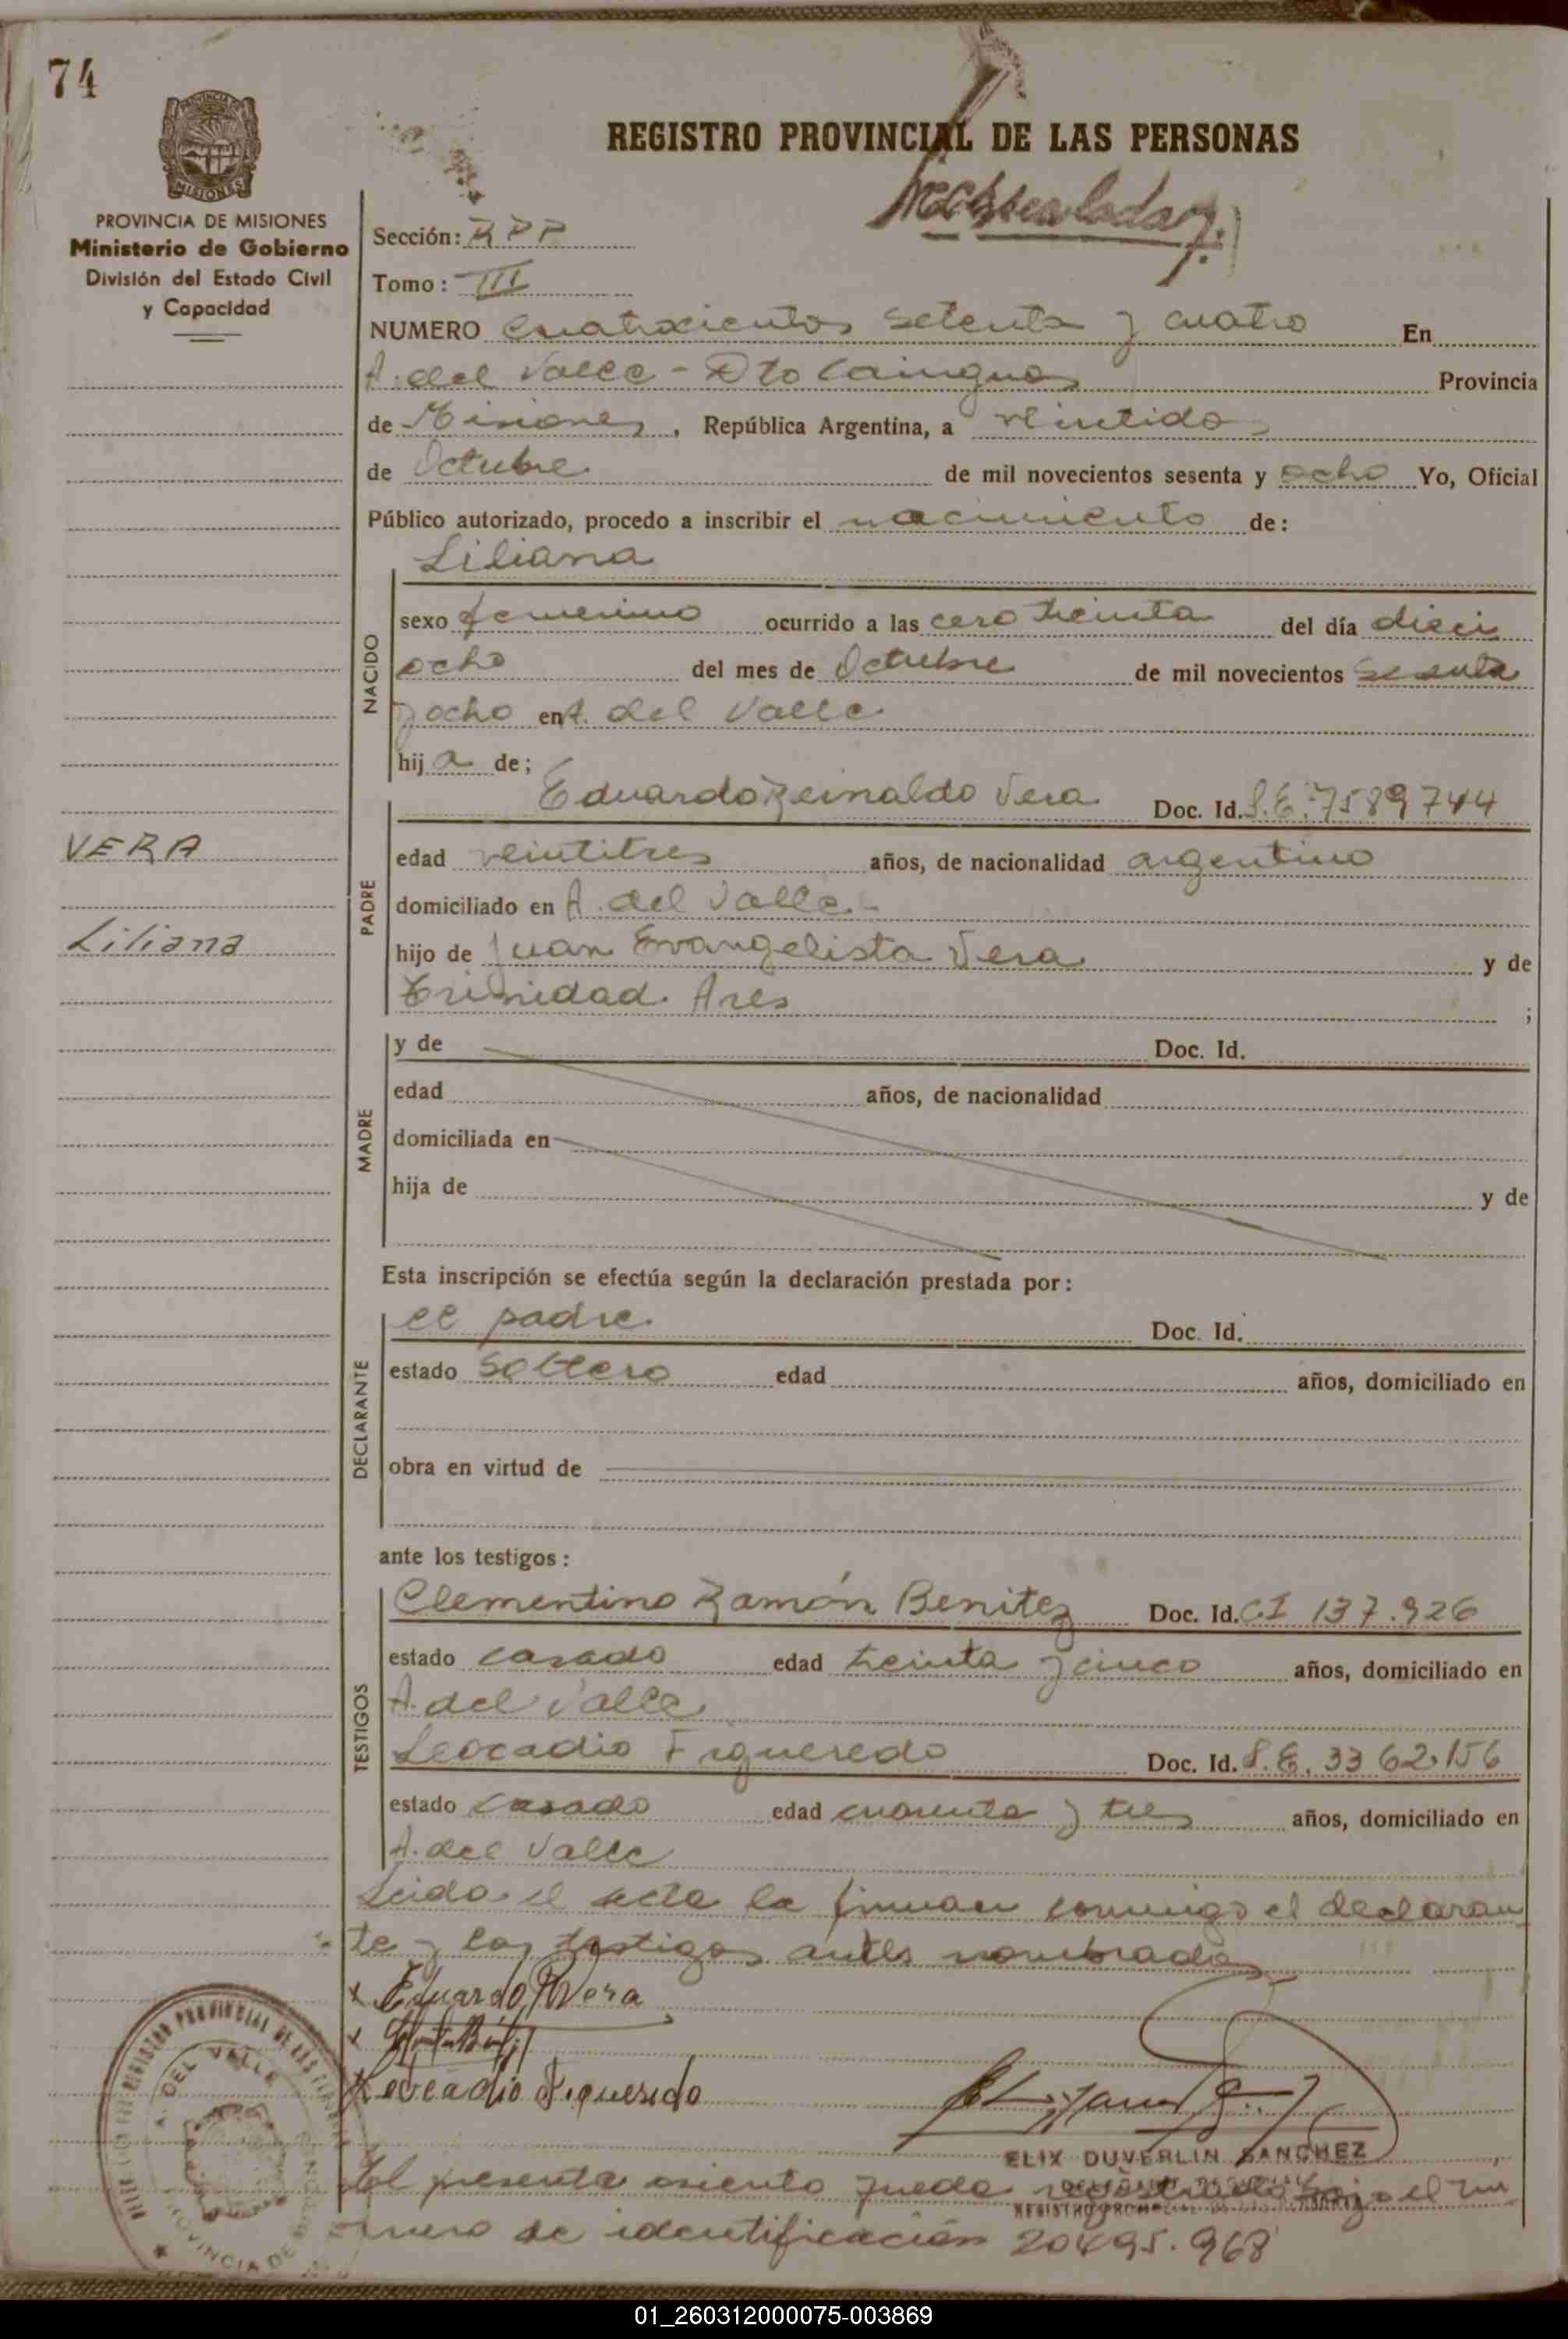 74
PROVINCIA DE MISIONES
Ministerio de Gobierno
División del Estado Civil
y Capacidad
REGISTRO PROVINCIAL DE LAS PERSONAS
Sección: RPP
Tomo: III
NUMERO cuatrocientos setenta y cuatro En
A. del Valle - Dto Cainguas Provincia
de Misiones, República Argentina, a veintidos
de Octubre de mil novecientos sesenta y ocho Yo, Oficial
Público autorizado, procedo a inscribir el nacimiento de:
NACIDO
Liliana
sexo femenino ocurrido a las cero treinta del día dieci
ocho del mes de Octubre de mil novecientos sesenta
y ocho en A. del Valle
hija de;
VERA
Liliana
PADRE
Eduardo Reinaldo Vera Doc. Id. L.E. 7589744
edad veintitres años, de nacionalidad argentino
domiciliado en A. del Valle
hijo de Juan Evangelista Vera y de
Trinidad Ares ;
MADRE
y de Doc. Id.
edad años, de nacionalidad
domiciliada en
hija de y de
Esta inscripción se efectúa según la declaración prestada por:
DECLARANTE
el padre. Doc. Id.
estado soltero edad años, domiciliado en
obra en virtud de
ante los testigos:
TESTIGOS
Clementino Ramón Benitez Doc. Id. C.I 137.926
estado casado edad treinta y cinco años, domiciliado en
A. del Valle
Leocadio Figueredo Doc. Id. L.E. 33 62.156
estado casado edad cuarenta y tres años, domiciliado en
A. del Valle
Leida el acta la firman conmigo el declaran
te y los testigos antes nombrados
x Eduardo R Vera
x
x Leocadio Figueredo
ELIX DUVERLIN SANCHEZ
A. DEL VALLE
El presente asiento queda registrado bajo el nu
mero de identificación 20495.968
01_260312000075-003869